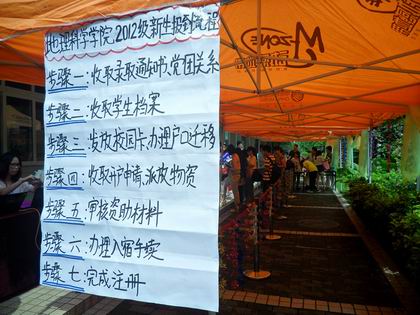 地理科学学院2012级新生报到流程
步骤一:收取录取通知书、党团关系
步骤二:收取学生档案
步骤三:发放校园卡、办理户口迁移
步骤四:收取开户申请、派放物资
步骤五:审核资助材料
步骤六:办理入宿手续
步骤七:完成注册
M-ZONE